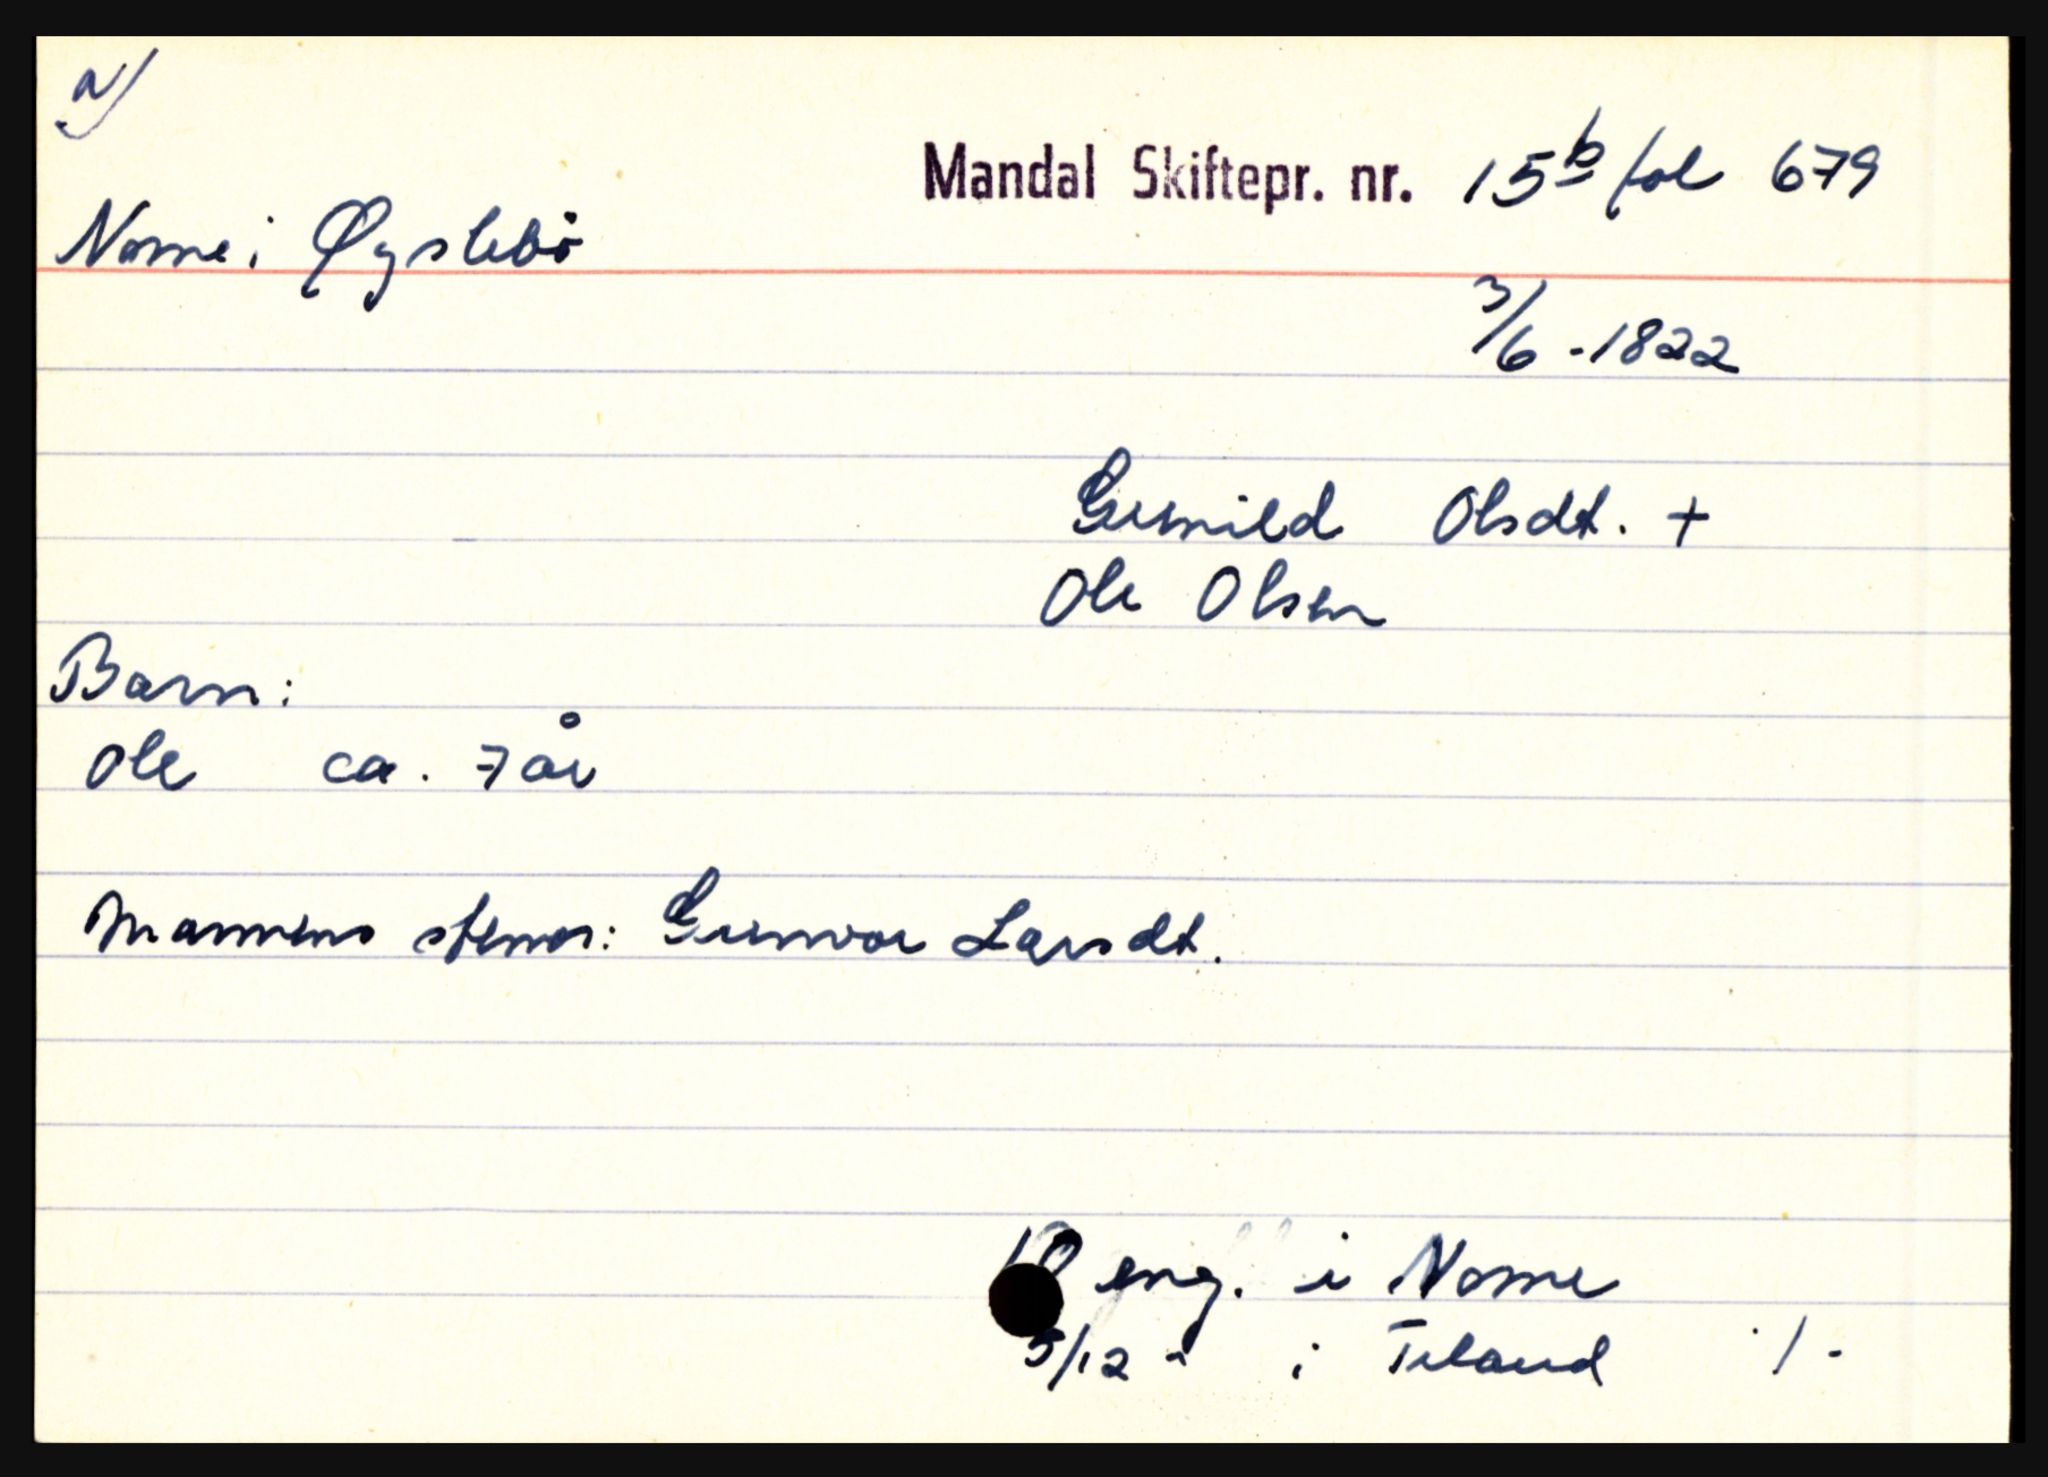 a)
Mandal Skiftepr. nr. 15b fol 679
Nome i Øyslebö
3/6 - 1822
Gunild Olsdt. +
Ole Olsen
Barn:
Ole ca. 7 år
Mannens stemor: Gunvor Larsdt.
eng. i Nome
5/12 " i Trland